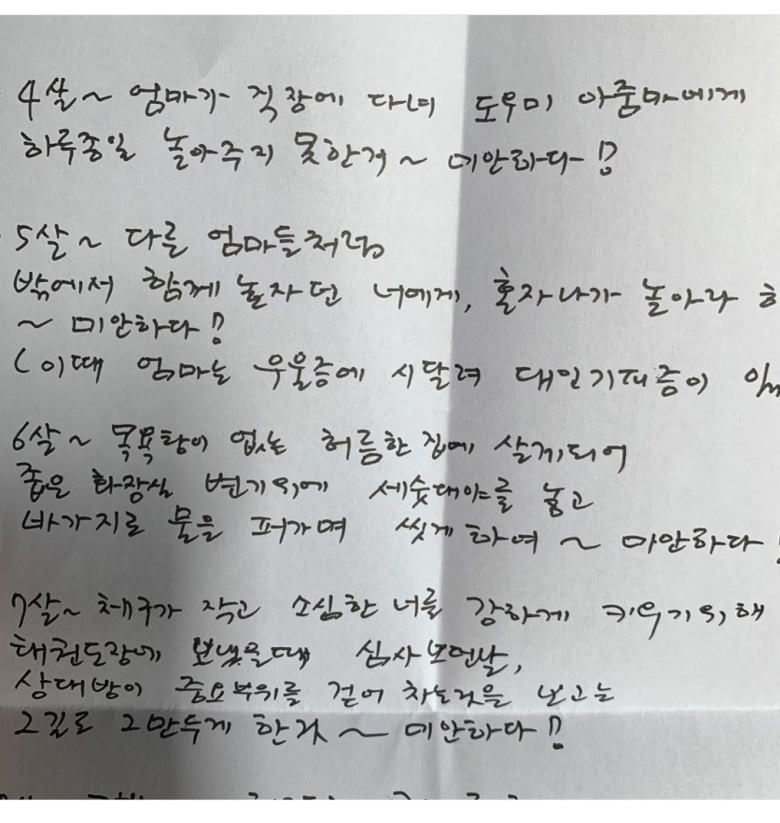 4살~ 엄마가 직장에 다녀 도우미 아줌마에게
하루종일 놀아주지 못한거~ 미안하다!!
5살~ 다른 엄마들처럼
밖에서 함께 놀자던 너에게, 혼자나가 놀아라
~ 미안하다!!
(이때 엄마는 우울증에 시달려 대인기피증이
6살~ 목욕탕이 없는 허름한 집에 살게되어
좁은 화장실 변기위에 세숫대야를 놓고
바가지로 물을 퍼가며 씻게 하여 ~ 미안하다!
7살~ 체구가 작고 소심한 너를 강하게 키우기위해
태권도장에 보냈을때 심사보던날,
상대방이 중요부위를 걷어 차는것을 보고는
그길로 그만두게 한거 ~ 미안하다!!